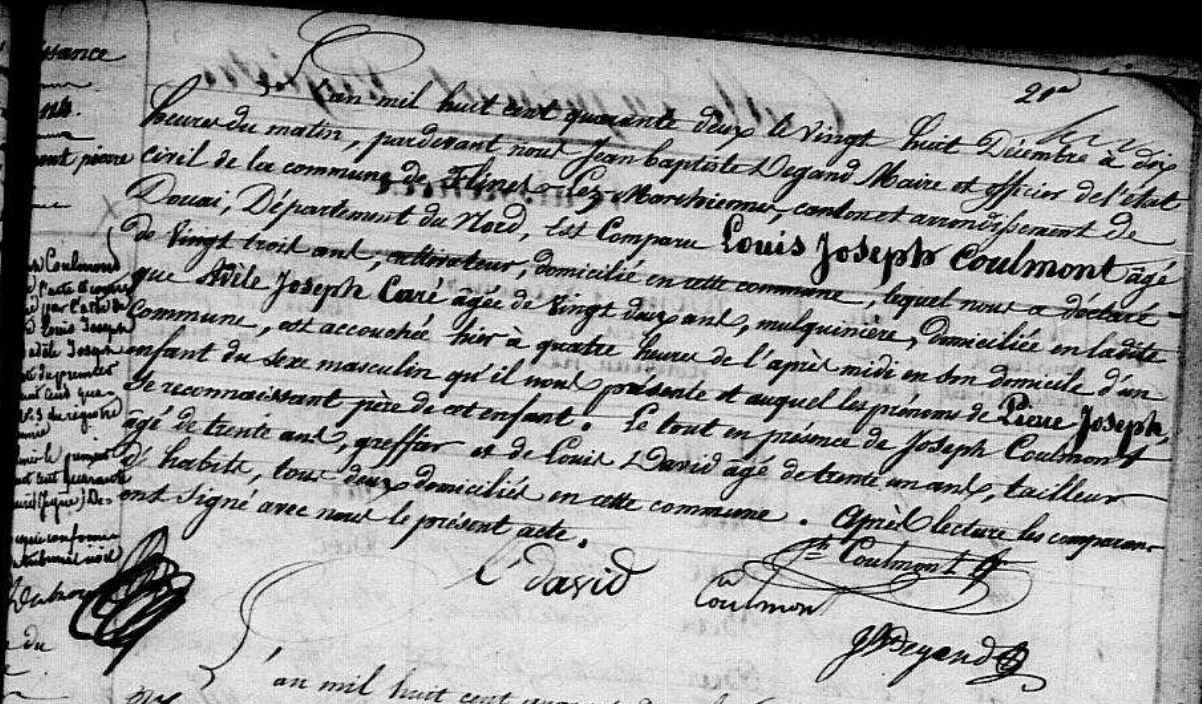 ssance
ont pierre
Coulmond
Louis Joseph
adèle Joseph
du premier
du registre
cent quarante
du
L'an mil huit cent quarante deux le vingt huit Décembre à dix
heures du matin, pardevant nous Jean baptiste Degand Maire et officier de l'état
civil de la commune de Flines-Lez-Marchiennes, canton et arrondissement de
Douai, Département du Nord, Est Comparu Louis Joseph Coulmont âgé
de vingt trois ans, cultivateur, domicilié en cette commune, lequel nous a déclaré
que Adèle Joseph Caré âgée de vingt deux ans, mulquinière, domiciliée en ladite
Commune, est accouchée hier à quatre heures de l'après midi en son domicile d'un
enfant du sexe masculin qu'il nous présente et auquel les prénoms de Pierre Joseph,
Se reconnaissant père de cet enfant. Le tout en présence de Joseph Coulmont
âgé de trente ans, greffier et de Louis David âgé de trente un ans, tailleur
d'habits, tous deux domiciliés en cette commune. Après lecture les comparans
ont signé avec nous le présent acte.
Jh Coulmont
L' David
Coulmon
Degand
L'an mil huit cent